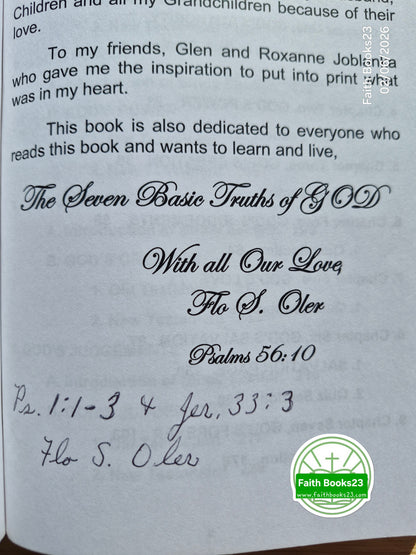 Children and all my Grandchildren because of their
love.
To my friends, Glen and Roxanne Joblanka
who gave me the inspiration to put into print what
was in my heart.
This book is also dedicated to everyone who
reads this book and wants to learn and live,
The Seven Basic Truths of GOD
With all Our Love,
Flo S. Oler
Psalms 56:10
Ps. 1:1-3 & Jer, 33:3
Flo S. Oler
Faith Books23
www.faithbooks23.com
Faith Books23